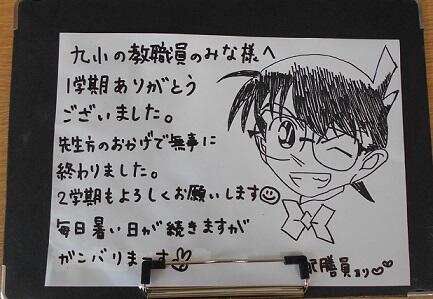 九小の教職員のみな様へ
1学期ありがとう
ございました。
先生方のおかげで無事に
終わりました。
2学期もよろしくお願いします
毎日暑い日が続きますが
ガンバリまーす
配膳員より